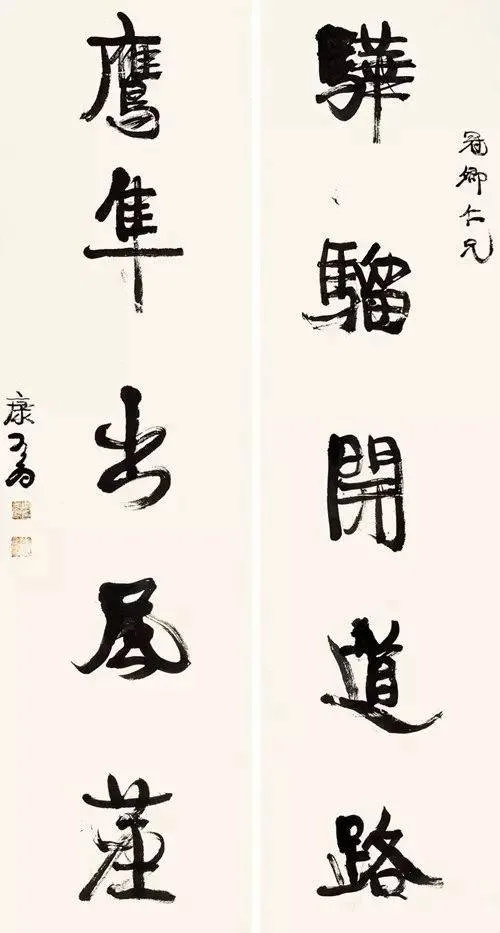 冠卿仁兄
驊騮開道路
鷹隼出風塵
康有為